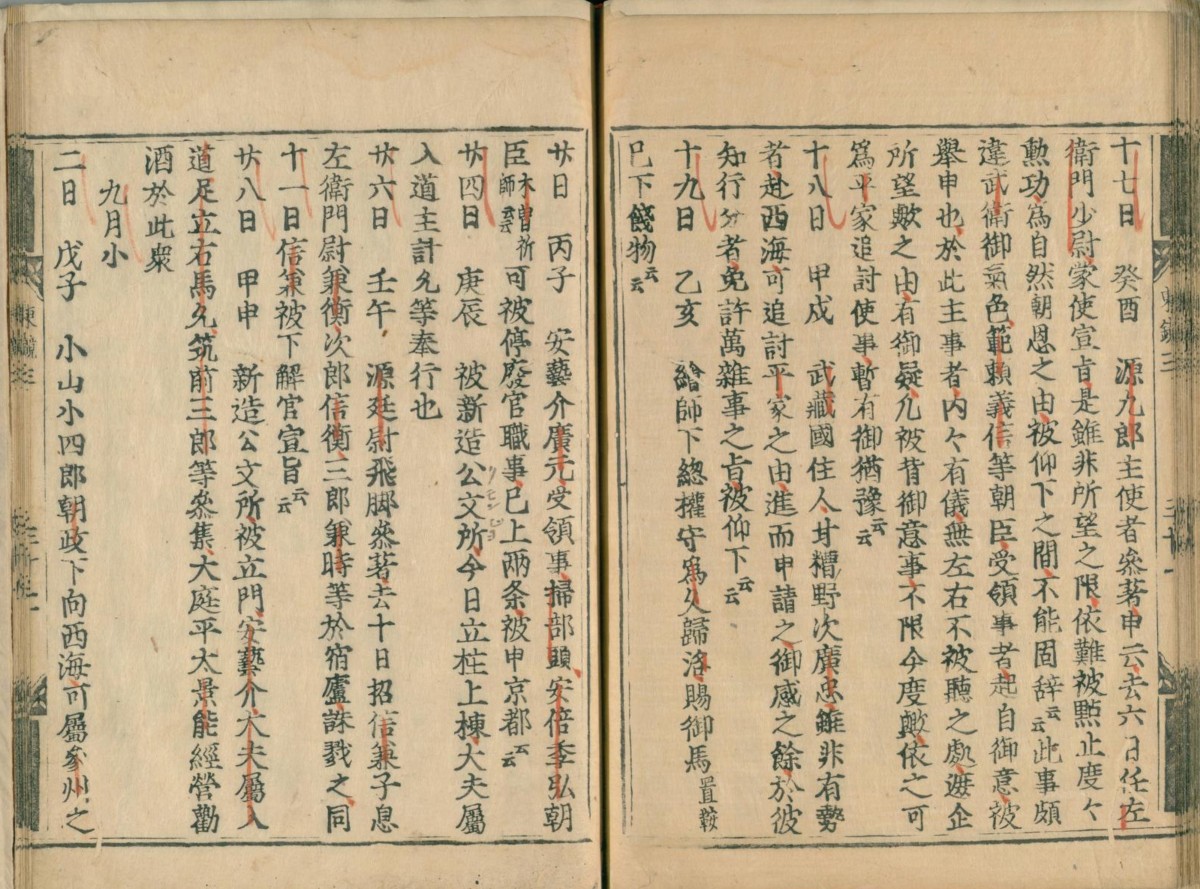 十七日 癸酉 源九郎主使者叅著申云去六日任左
衛門少尉蒙使宣旨是雖非所望之限依難被黙止度々
勲功為自然朝恩之由被仰下之間不能固辞云云此事頗
違武衛御氣色範頼義信等朝臣受領事者起自御意被
舉申也於此主事者内々有儀無左右不被聴之處遮企
所望歟之由有御疑凢被背御意事不限今度歟依之可
為平家追討使事暫有御猶豫云云
十八日 甲戌 武藏國住人甘糟野次廣忠雖非有勢
者赴西海可追討平家之由進而申請之御感之餘於彼
知行分者免許萬雜事之旨被仰下云云
十九日 乙亥 繪師下總權守為久歸洛賜御馬置鞍
已下餞物云云
廿日 丙子 安藝介廣元受領事掃部頭安倍季弘朝
臣木曽祈師云云可被停廢官職事已上兩条被申京都云云
廿四日 庚辰 被新造公文所今日立柱上棟大夫屬
入道主計允等奉行也
廿六日 壬午 源廷尉飛脚叅著去十日招信兼子息
左衛門尉兼衡次郎信衡三郎兼時等於宿廬誅戮之同
十一日信兼被下解官宣旨云云
廿八日 甲申 新造公文所被立門安藝介大夫屬入
道足立右馬允筑前三郎等叅集大庭平太景能經營勸
酒於此衆
九月小
二日 戊子 小山小四郎朝政下向西海可屬叅州之